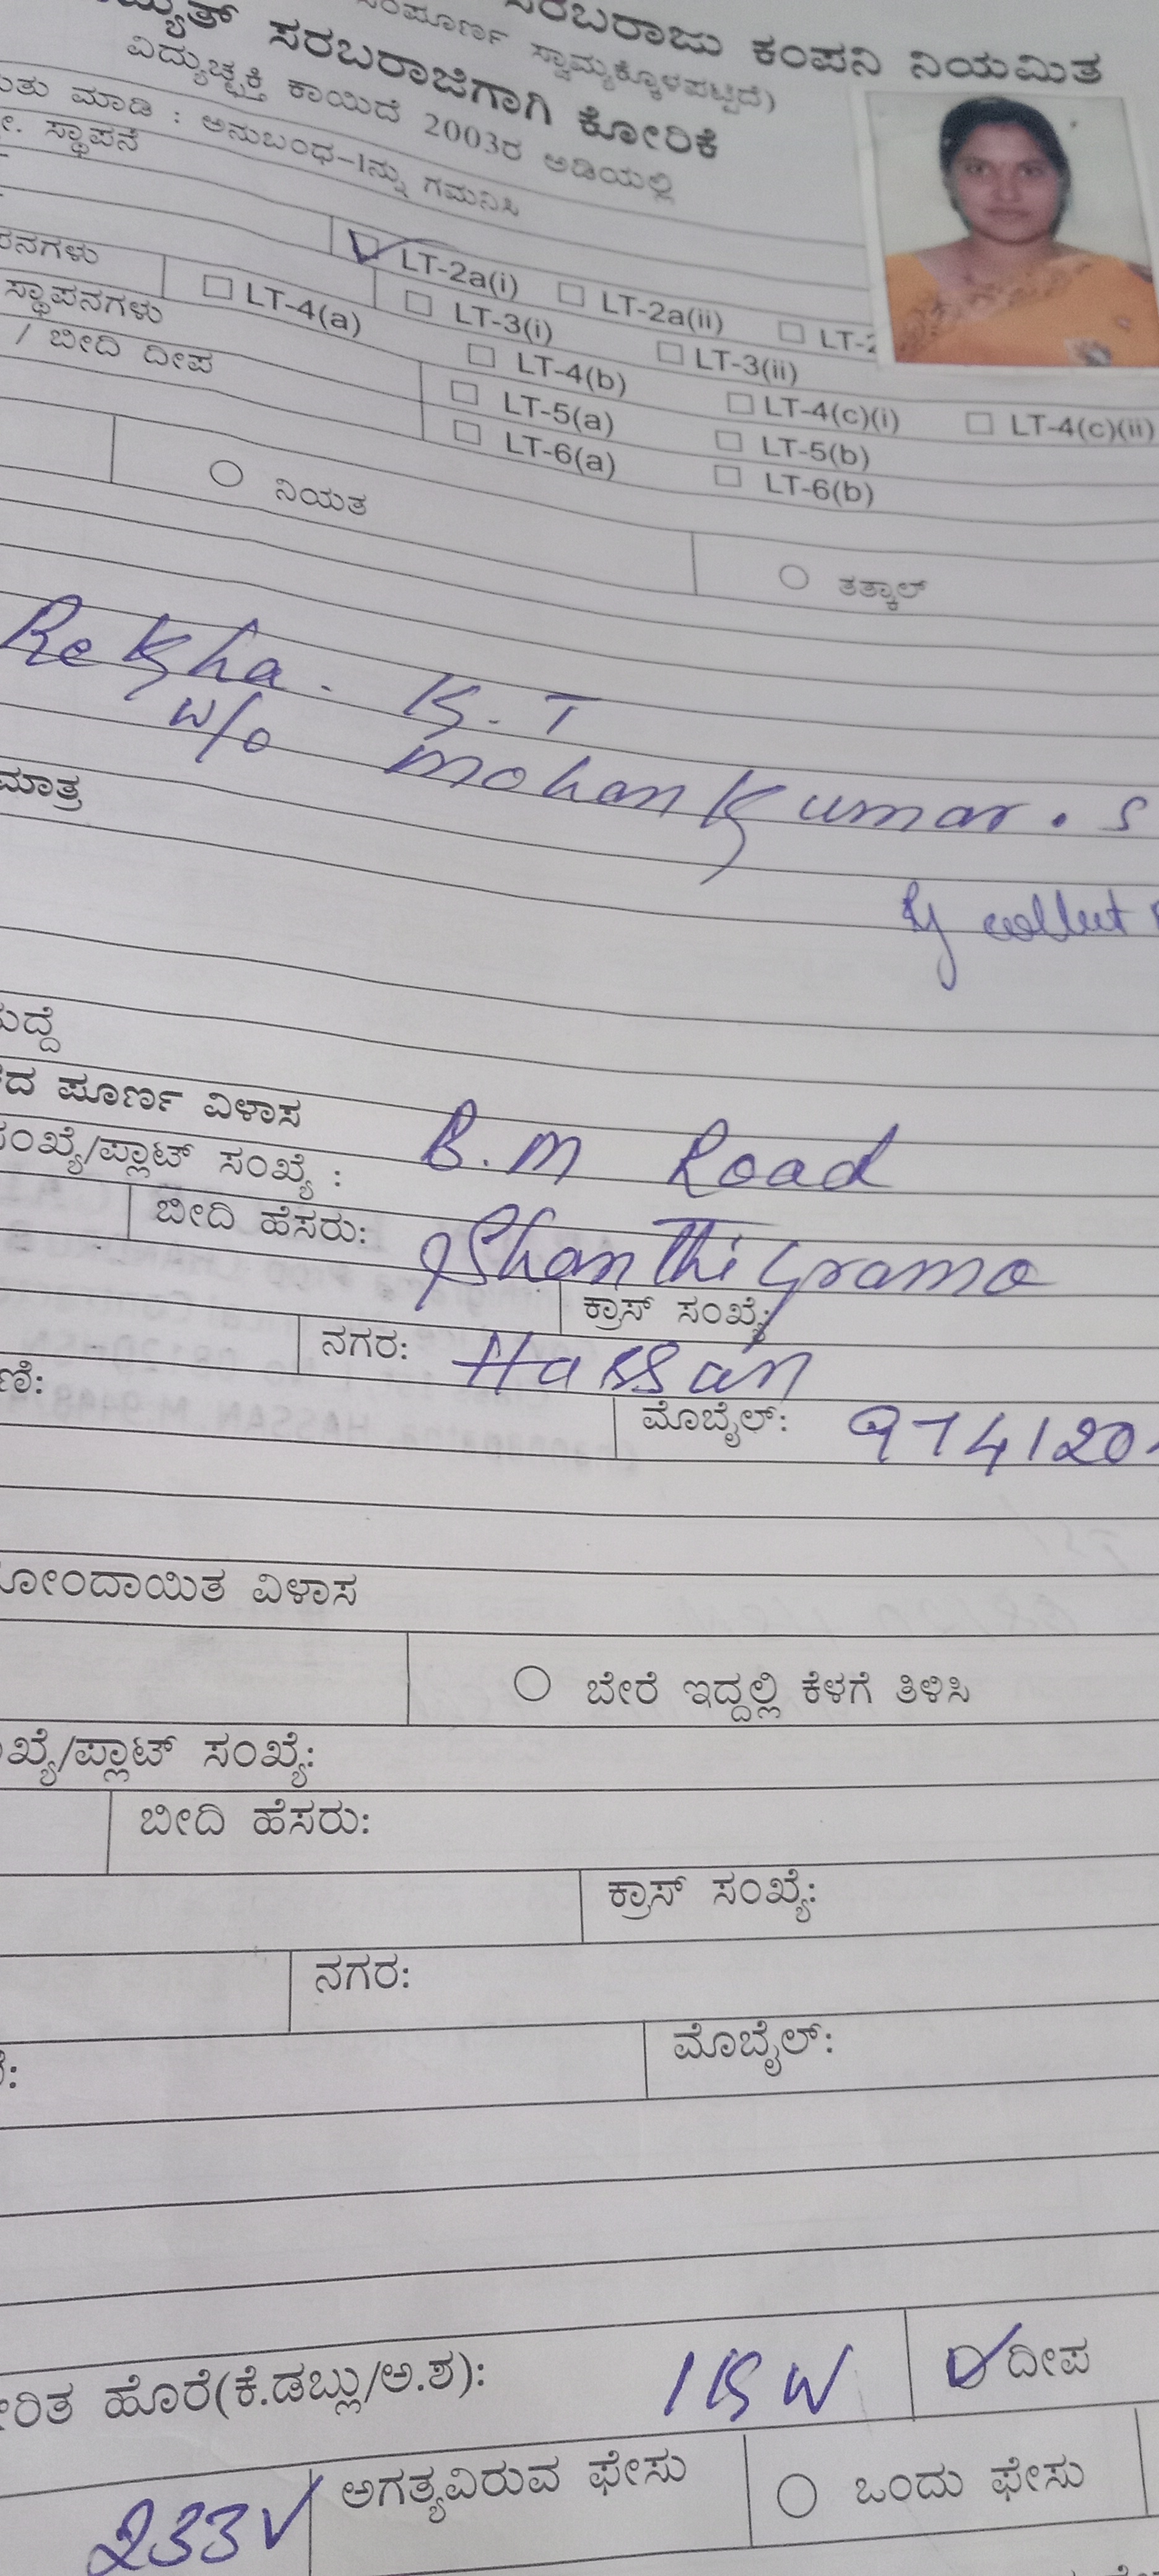 ಸರಬರಾಜು ಕಂಪನಿ ನಿಯಮಿತ
ಸಂಪೂರ್ಣ ಸ್ವಾಮ್ಯಕ್ಕೊಳಪಟ್ಟದೆ)
ಸರಬರಾಜಿಗಾಗಿ ಕೋರಿಕೆ
ವಿದ್ಯುಚ್ಛಕ್ತಿ ಕಾಯಿದೆ 2003ರ ಅಡಿಯಲ್ಲಿ
ಮಾಡಿ : ಅನುಬಂಧ-1ನ್ನು ಗಮನಿಸಿ
ಸ್ಥಾಪನೆ
LT-2a(i) LT-2a(ii) LT-2
LT-3(i) LT-3(ii)
LT-4(a) LT-4(b) LT-4(c)(i) LT-4(c)(ii)
ಸ್ಥಾಪನಗಳು LT-5(a) LT-5(b)
/ ಬೀದಿ ದೀಪ LT-6(a) LT-6(b)
ನಿಯತ ತತ್ಕಾಲ್
Rekha. K. T
w/o Mohan Kumar. S
ಮಾತ್ರ
collect
ಪೂರ್ಣ ವಿಳಾಸ
ಸಂಖ್ಯೆ/ಪ್ಲಾಟ್ ಸಂಖ್ಯೆ : B.M Road
ಬೀದಿ ಹೆಸರು: Shanthigrama
ಕ್ರಾಸ್ ಸಂಖ್ಯೆ:
ನಗರ: Hassan
ಮೊಬೈಲ್: 974120
ವಿಳಾಸ
ಬೇರೆ ಇದ್ದಲ್ಲಿ ಕೆಳಗೆ ತಿಳಿಸಿ
ಖ್ಯೆ/ಪ್ಲಾಟ್ ಸಂಖ್ಯೆ:
ಬೀದಿ ಹೆಸರು:
ಕ್ರಾಸ್ ಸಂಖ್ಯೆ:
ನಗರ:
ಮೊಬೈಲ್:
ಹೊರೆ(ಕೆ.ಡಬ್ಲು/ಅ.ಶ): 1KW ದೀಪ
233V ಅಗತ್ಯವಿರುವ ಫೇಸು ಒಂದು ಫೇಸು